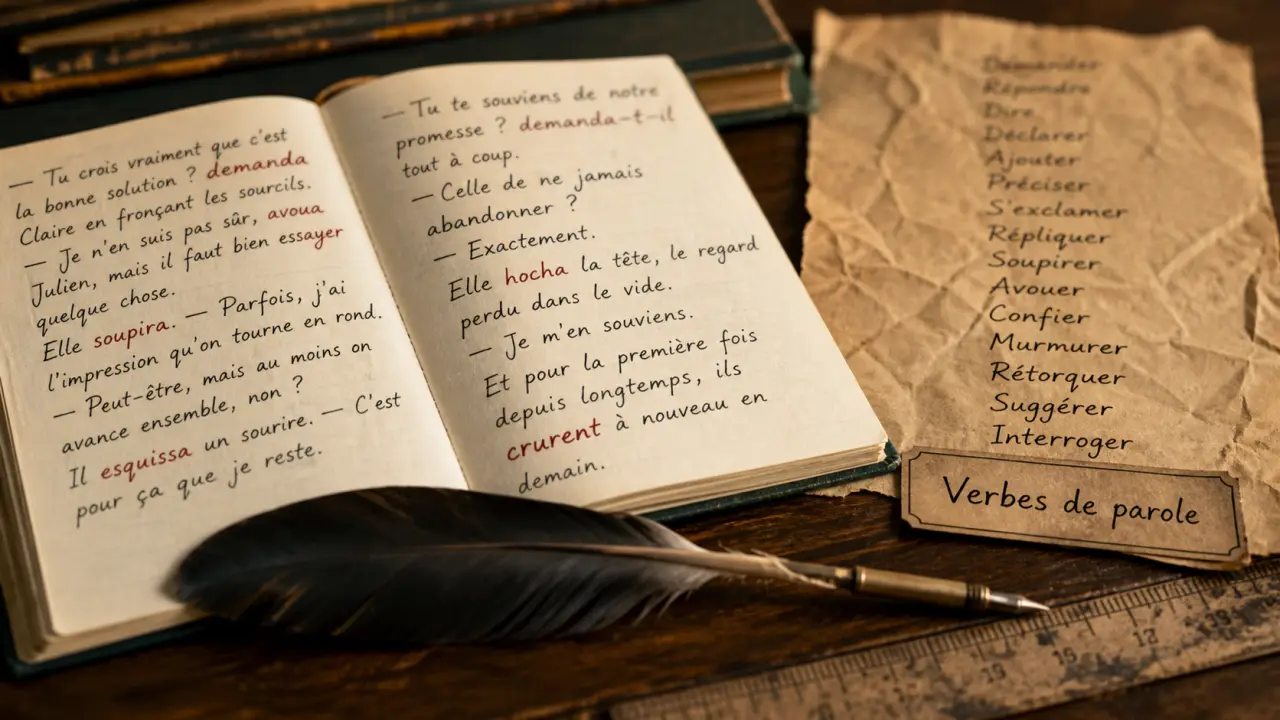 — Tu crois vraiment que c'est
la bonne solution ? demanda
Claire en fronçant les sourcils.
— Je n'en suis pas sûr, avoua
Julien, mais il faut bien essayer
quelque chose.
Elle soupira. — Parfois, j'ai
l'impression qu'on tourne en rond.
— Peut-être, mais au moins on
avance ensemble, non ?
Il esquissa un sourire. — C'est
pour ça que je reste.
— Tu te souviens de notre
promesse ? demanda-t-il
tout à coup.
— Celle de ne jamais
abandonner ?
— Exactement.
Elle hocha la tête, le regard
perdu dans le vide.
— Je m'en souviens.
Et pour la première fois
depuis longtemps, ils
crurent à nouveau en
demain.
Demander
Répondre
Dire
Déclarer
Ajouter
Préciser
S'exclamer
Répliquer
Soupirer
Avouer
Confier
Murmurer
Rétorquer
Suggérer
Interroger
Verbes de parole